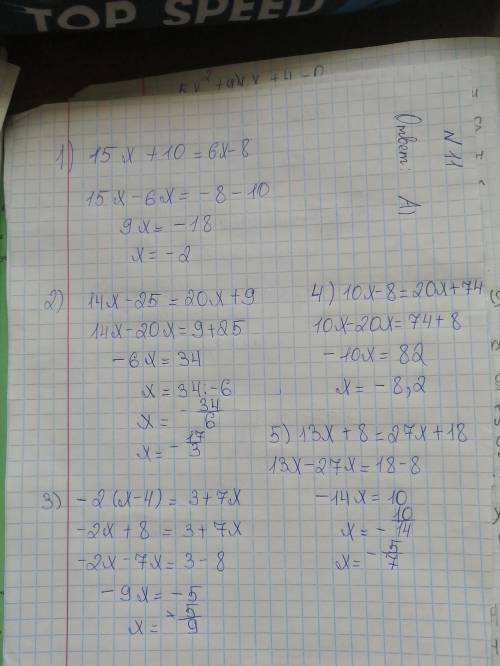 TOP SPEED
N 11
Ответ: А)
1) 15x + 10 = 6x - 8
15x - 6x = -8 - 10
9x = -18
x = -2
2) 14x - 25 = 20x + 9
14x - 20x = 9 + 25
-6x = 34
x = 34 : -6
x = -34/6
x = -17/3
3) -2(x-4) = 3 + 7x
-2x + 8 = 3 + 7x
-2x - 7x = 3 - 8
-9x = -5
x = -5/9
4) 10x - 8 = 20x + 74
10x - 20x = 74 + 8
-10x = 82
x = -8,2
5) 13x + 8 = 27x + 18
13x - 27x = 18 - 8
-14x = 10
x = -10/14
x = -5/7